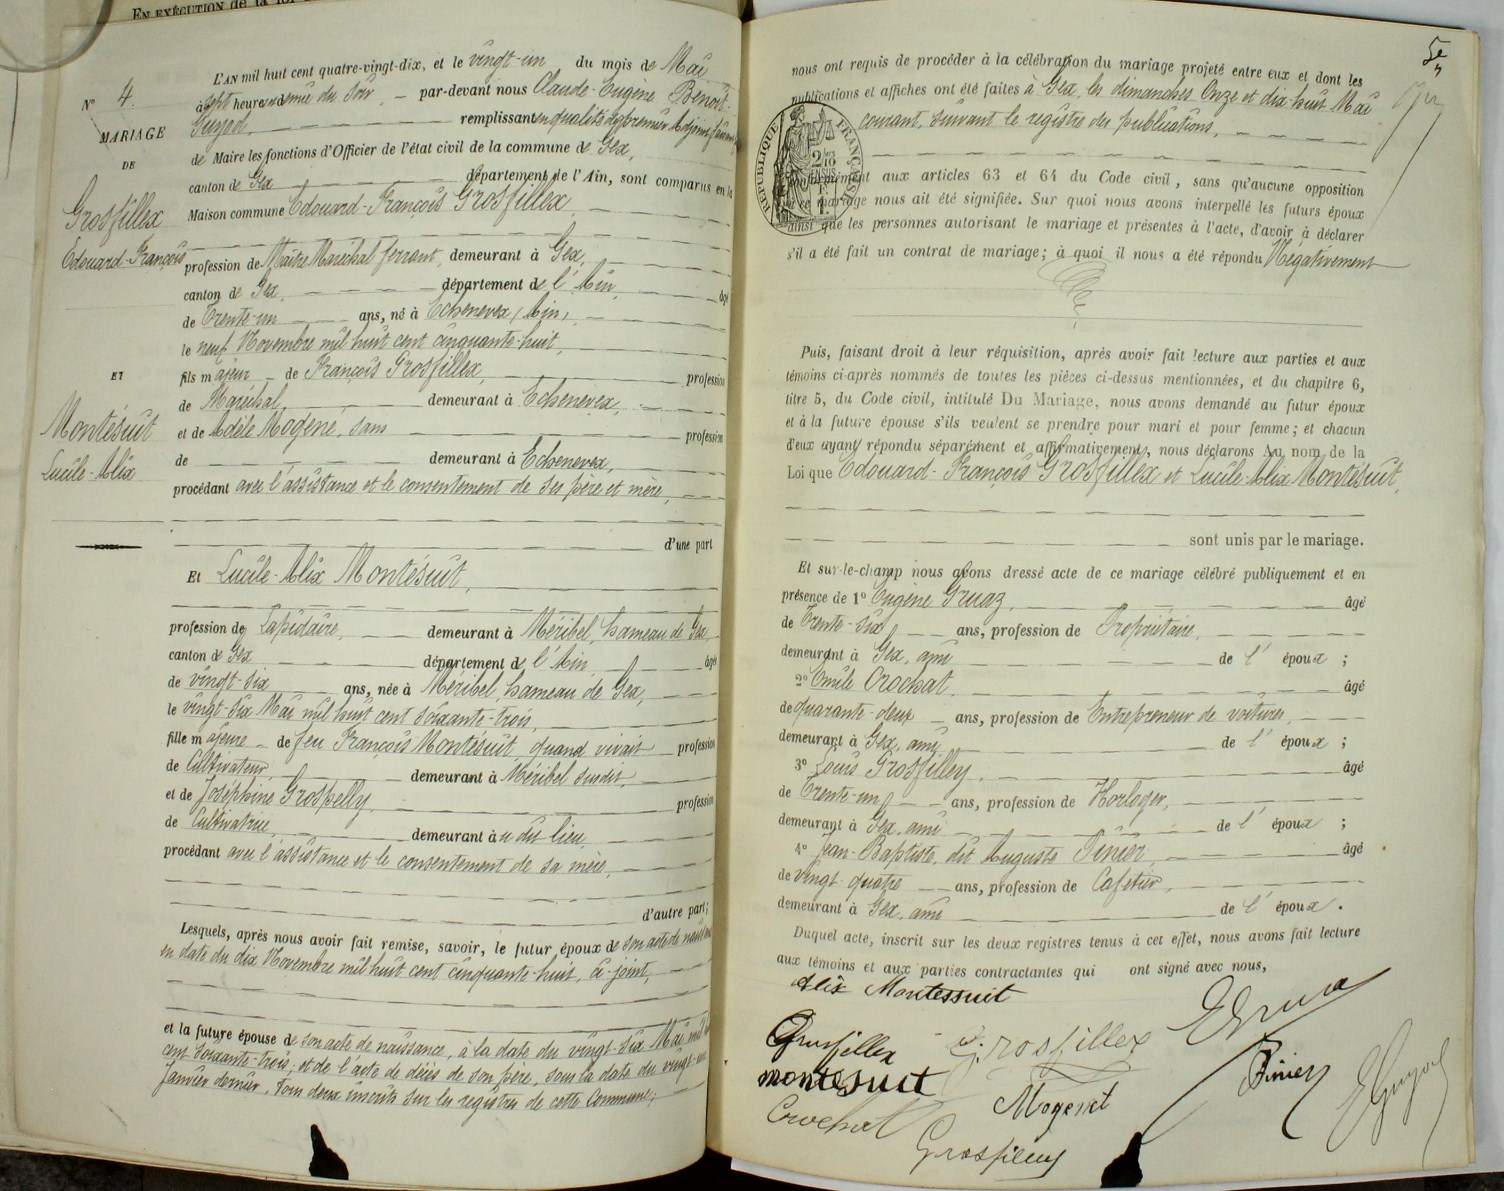 EN EXÉCUTION de la loi
N° 4.
MARIAGE
DE
Grosfillex
Édouard-François
ET
Montésuit
Lucile-Alix
L'AN mil huit cent quatre-vingt-dix, et le vingt-un du mois de Mai
à sept heures et demie du soir, par-devant nous Claude-Eugène Benoit-
Guyod, remplissant en qualité de premier Adjoint
de Maire les fonctions d'Officier de l'état civil de la commune de Gex,
canton de Gex département de l'Ain, sont comparus en la
Maison commune Edouard-François Grosfillex
profession de Maître Maréchal ferrant, demeurant à Gex,
canton de Gex, département de l'Ain, âgé
de Trente-un ans, né à Echenevex (Ain),
le neuf Novembre mil huit cent cinquante-huit,
fils majeur de François Grosfillex, profession
de Maréchal demeurant à Echenevex,
et de Adèle Mogéné, sans profession
de demeurant à Echenevex,
procédant avec l'assistance et le consentement de ses père et mère,
d'une part
Et Lucile-Alix Montésuit,
profession de Lapidaire, demeurant à Méribel, hameau de Gex,
canton de Gex département de l'Ain âgée
de vingt-six ans, née à Méribel, hameau de Gex,
le vingt-six Mai mil huit cent soixante-trois,
fille majeure de feu François Montésuit, quand vivait profession
de Cultivateur demeurant à Méribel susdit,
et de Joséphine Grospelly profession
de Cultivatrice, demeurant à u dit lieu,
procédant avec l'assistance et le consentement de sa mère,
d'autre part;
Lesquels, après nous avoir fait remise, savoir, le futur époux de son acte de naissance
en date du dix Novembre mil huit cent cinquante-huit, ci-joint,
et la future épouse de son acte de naissance, à la date du vingt-six Mai mil huit
cent soixante-trois, et de l'acte de décès de son père, sous la date du vingt-un
Janvier dernier, tous deux inscrits sur les registres de cette Commune;
5e
nous ont requis de procéder à la célébration du mariage projeté entre eux et dont les
publications et affiches ont été faites à Gex, les dimanches Onze et dix-huit Mai
courant, suivant le registre des publications,
RÉPUBLIQUE FRANÇAISE
conformément aux articles 63 et 64 du Code civil, sans qu'aucune opposition
ce mariage nous ait été signifiée. Sur quoi nous avons interpellé les futurs époux
ainsi que les personnes autorisant le mariage et présentes à l'acte, d'avoir à déclarer
s'il a été fait un contrat de mariage; à quoi il nous a été répondu Négativement
Puis, faisant droit à leur réquisition, après avoir fait lecture aux parties et aux
témoins ci-après nommés de toutes les pièces ci-dessus mentionnées, et du chapitre 6,
titre 5, du Code civil, intitulé Du Mariage, nous avons demandé au futur époux
et à la future épouse s'ils veulent se prendre pour mari et pour femme; et chacun
d'eux ayant répondu séparément et affirmativement, nous déclarons Au nom de la
Loi que Edouard-François Grosfillex et Lucile-Alix Montésuit,
sont unis par le mariage.
Et sur-le-champ nous avons dressé acte de ce mariage célébré publiquement et en
présence de 1° Eugène Gruaz, âgé
de Trente-six ans, profession de Propriétaire,
demeurant à Gex, ami de l'époux;
2° Emile Crochat, âgé
de quarante-deux ans, profession de Entrepreneur de voitures,
demeurant à Gex, ami de l'époux;
3° Louis Grosfilley, âgé
de Trente-un ans, profession de Horloger,
demeurant à Gex, ami de l'époux;
4° Jean-Baptiste, dit Auguste Pinier, âgé
de vingt-quatre ans, profession de Cafetier,
demeurant à Gex, ami de l'époux.
Duquel acte, inscrit sur les deux registres tenus à cet effet, nous avons fait lecture
aux témoins et aux parties contractantes qui ont signé avec nous,
Alix Montessuit
Grosfillex Grosfillex EGruaz
montesuit Mogenet Pinier EGuyod
Crochat Grosfilley